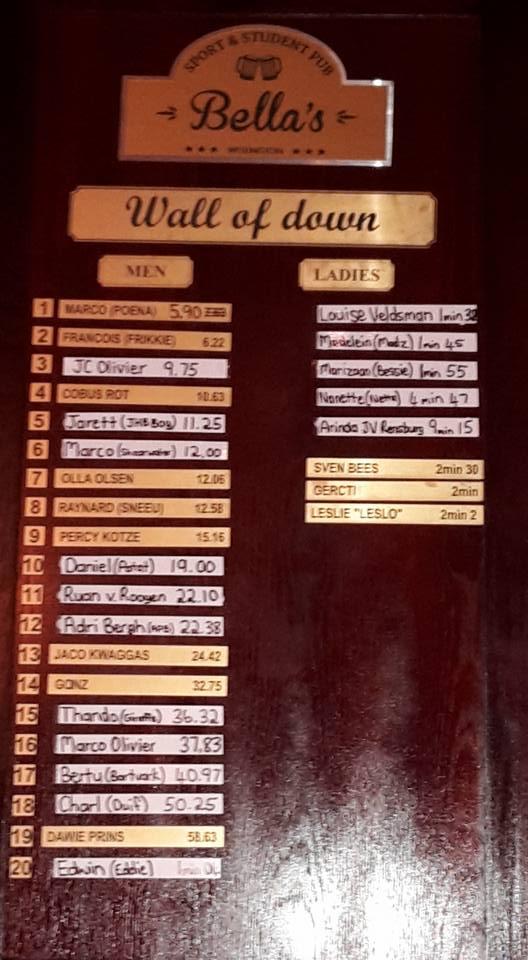 SPORT & STUDENT PUB
Bella's
WELLINGTON
Wall of down
MEN
1 MARCO (POENA) 5.90
2 FRANCOIS (FRIKKIE) 6.22
3 JC Olivier 9.75
4 COBUS ROT 10.63
5 Jarett (JHB Boy) 11.25
6 Marco 12.00
7 OLLA OLSEN 12.06
8 RAYNARD (SNEEU) 12.58
9 PERCY KOTZE 15.16
10 Daniel 19.00
11 Ruan v. Rooyen 22.10
12 Adri Bergh 22.38
13 JACO KWAGGAS 24.42
14 GONZ 32.75
15 Thando (Giraffe) 36.32
16 Marco Olivier 37.83
17 Bertu (Bartvark) 40.97
18 Charl (Duif) 50.25
19 DAWIE PRINS 58.63
20 Edwin (Eddie) 1min
LADIES
Louise Veldsman 1min 32
Madelein (Madz) 1min 45
Marizaan (Bessie) 1min 55
Nanette (Nettie) 4min 47
Arinda JV Rensburg 9min 15
SVEN BEES 2min 30
GERCTI 2min
LESLIE "LESLO" 2min 2